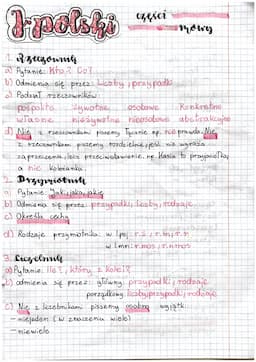 J. polski części mowy
1. Rzeczownik
a) Pytanie: Kto? Co?
b) Odmienia się przez: liczby, przypadki
c) Podział rzeczowników:
pospolite żywotne osobowe konkretne
własne nieżywotne nieosobowe abstrakcyjne
d) Nie z rzeczownikami piszemy łącznie np. nieprawda. Nie
z rzeczownikiem piszemy rozdzielnie, jeśli nie wyraża
zaprzeczenia, lecz przeciwstawienie np. Kasia to przyjaciółka,
a nie koleżanka.
2. Przymiotnik
a) Pytanie: Jaki, jaka, jakie
b) Odmienia się przez: przypadki, liczby, rodzaje
c) Określa cechy
d) Rodzaje przymiotnika: w lpoj: r.ż., r.m., r.n
w lmn: r.mos, r.nmos
3. Liczebnik
a) Pytanie: Ile?, który z kolei?
b) odmienia się przez: główny: przypadki, rodzaje
porządkowy: liczby, przypadki, rodzaje
c) Nie z liczebnikami piszemy osobno wyjątki:
– niejeden (w znaczeniu wiele)
– niewiele